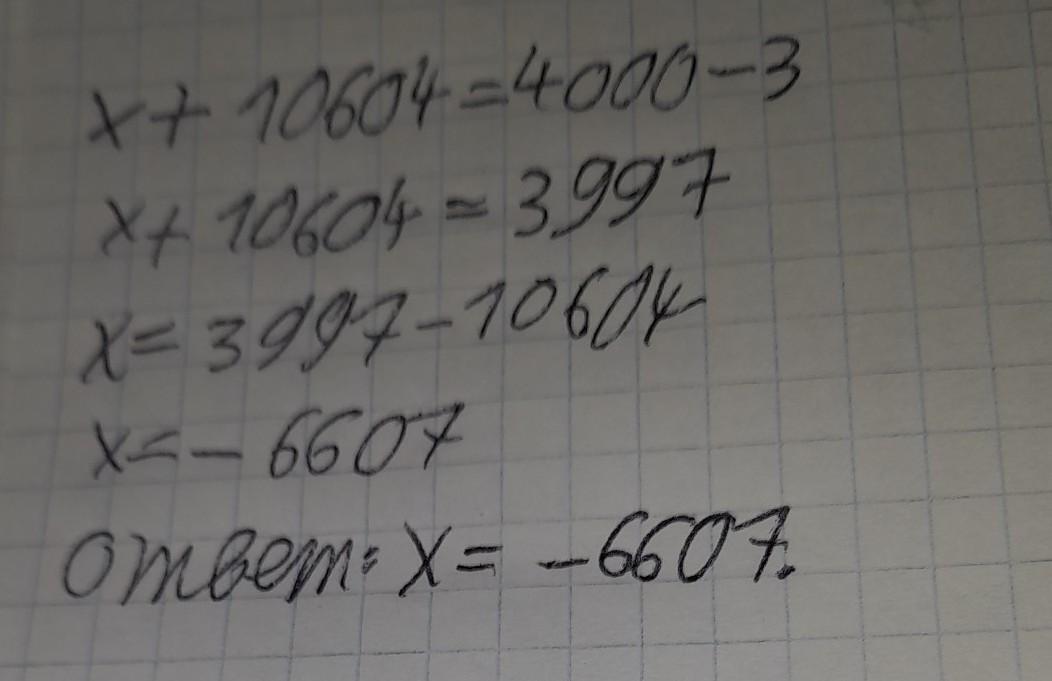 x + 10604 = 4000 - 3
x + 10604 = 3997
x = 3997 - 10604
x = - 6607
Ответ: x = -6607.